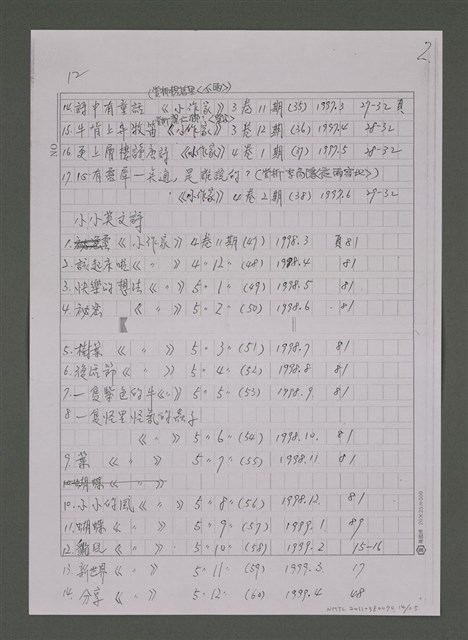 2
12
14.詩中有童話 《小作家》3卷11期(35) 1997.3 27-32頁
15. 《小作家》3卷12期(36) 1997.4 28-32
16.更上層樓 《小作家》4卷1期(37) 1997.5 28-32
17.心有靈犀一点通,是誰說的?
《小作家》4卷2期(38) 1997.6 27-32
小小英文詩
1. 《小作家》4卷11期(47) 1998.3 頁81
2.該起床啦《〃》4〃12〃(48) 1998.4 81
3.快樂的想法《〃》5〃1〃(49) 1998.5 81
4.秘密 《〃》5〃2〃(50) 1998.6 81
5.樹葉《〃》5〃3〃(51) 1998.7 81
6. 《〃》5〃4〃(52) 1998.8 81
7.一隻紫色的牛《〃》5〃5〃(53) 1998.9 81
8 一隻怪里怪氣的蟲子
《〃》5〃6〃(54) 1998.10. 81
9.葉 《〃》5〃7〃(55) 1998.11. 81
10.蝴蝶《〃》
10.小小的風《〃》5〃8〃(56) 1998.12. 81
11.蝴蝶《〃》5〃9〃(57) 1999.1 89
12. 《〃》5〃10〃(58) 1999.2 15-16
13.新世界《〃》5〃11〃(59) 1999.3. 17
14.分享《〃》5〃12〃(60) 1999.4 48